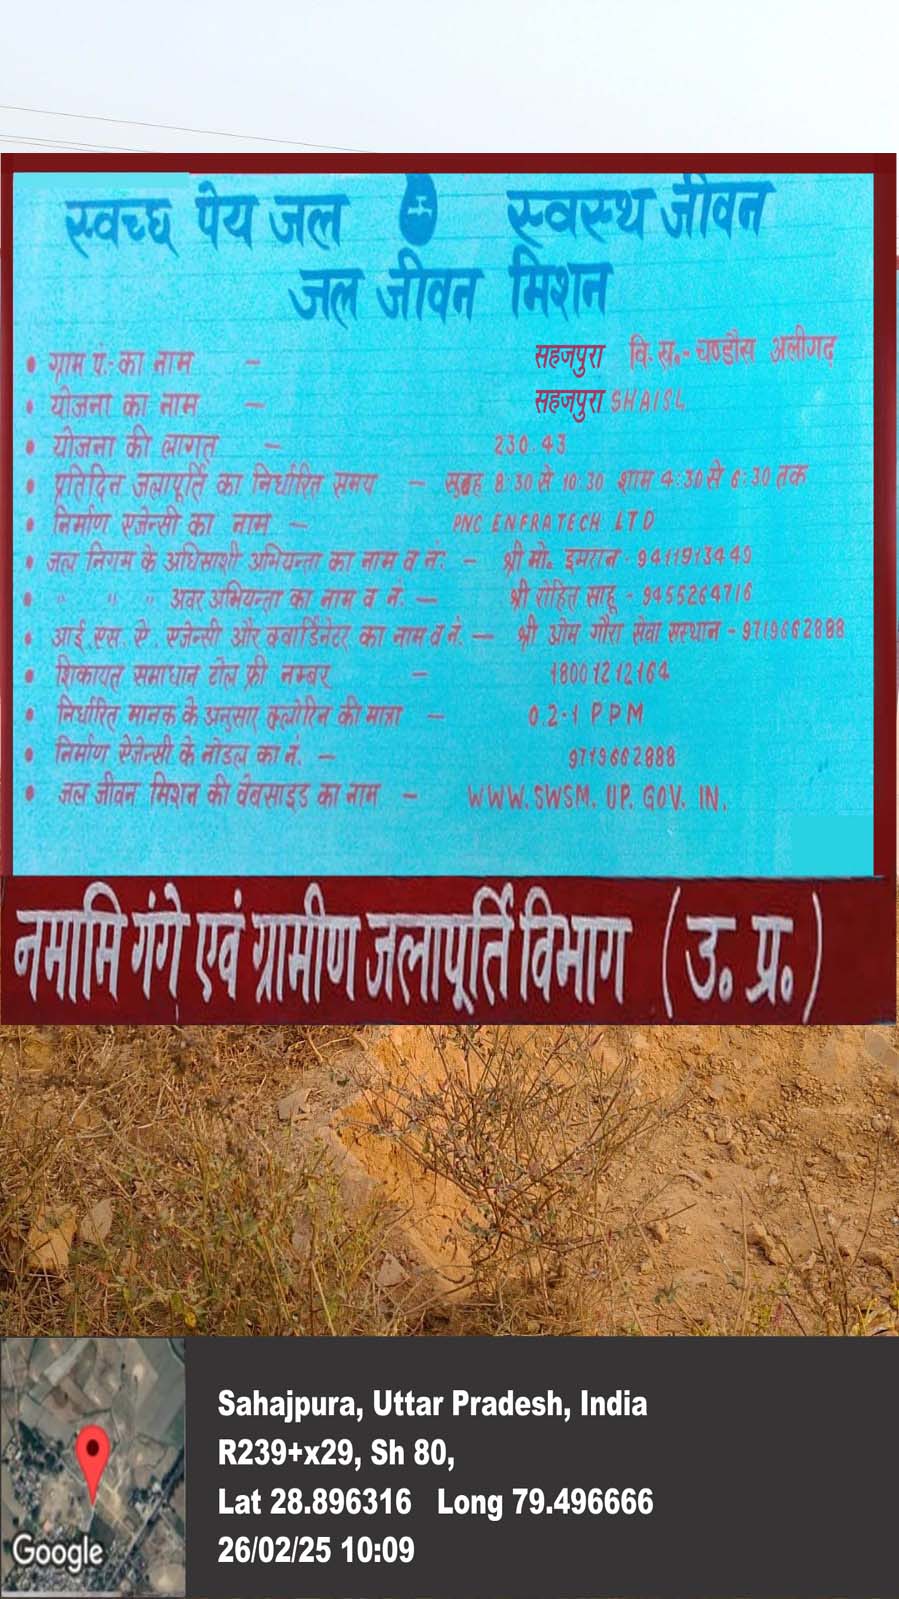 स्वच्छ पेय जल स्वस्थ जीवन
जल जीवन मिशन
• ग्राम पं.- का नाम - सहजपुरा वि. ख.- चण्डौस अलीगढ़
• योजना का नाम - सहजपुरा SHAISL
• योजना की लागत - 230.43
• प्रतिदिन जलापूर्ति का निर्धारित समय - सुबह 8:30 से 10:30 शाम 4:30 से 6:30 तक
• निर्माण एजेन्सी का नाम - PNC ENFRATECH LTD
• जल निगम के अधिसाशी अभियन्ता का नाम व नं: - श्री मो. इमरान - 9411913449
• " " " अवर अभियन्ता का नाम व नं. - श्री रोहित साहू - 9455264716
• आई. एस. ऐ. एजेन्सी और क्वार्डिनेटर का नाम व नं. - श्री ओम गौरा सेवा सस्थान - 9719662888
• शिकायत समाधान टोल फ्री नम्बर - 18001212164
• निर्धारित मानक के अनुसार क्लोरिन की मात्रा - 0.2-1 PPM
• निर्माण ऐजेन्सी के नोडल का नं. - 9719662888
• जल जीवन मिशन की वेबसाइड का नाम - WWW. SWSM. UP. GOV. IN.
नमामि गंगे एवं ग्रामीण जलापूर्ति विभाग (उ. प्र.)
Sahajpura, Uttar Pradesh, India
R239+x29, Sh 80,
Lat 28.896316 Long 79.496666
26/02/25 10:09
Google